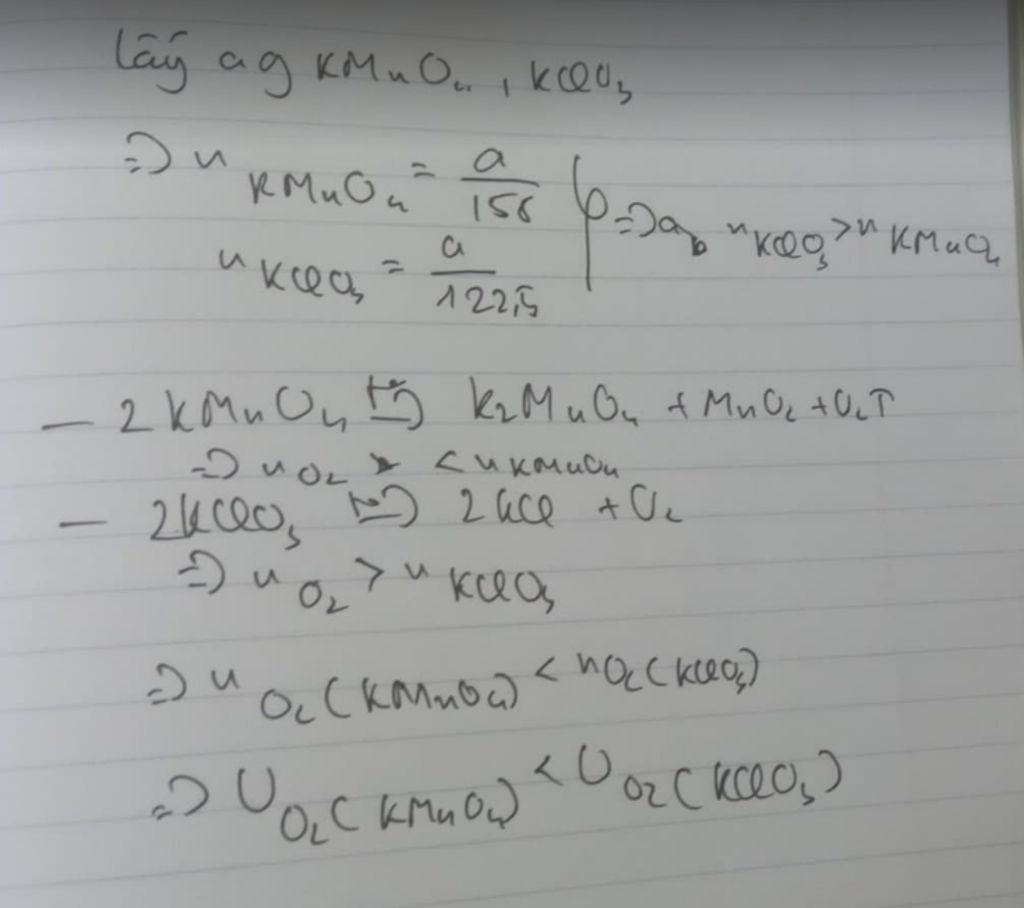 Lấy a g KMnO₄, KClO₃
=> n KMnO₄ = a/158
n KClO₃ = a/122,5
=> n KClO₃ > n KMnO₄
— 2KMnO₄ t°=> K₂MnO₄ + MnO₂ + O₂↑
=> n O₂ < n KMnO₄
— 2KClO₃ t°=> 2KCl + O₂
=> n O₂ > n KClO₃
=> n O₂(KMnO₄) < n O₂(KClO₃)
=> V O₂(KMnO₄) < V O₂(KClO₃)